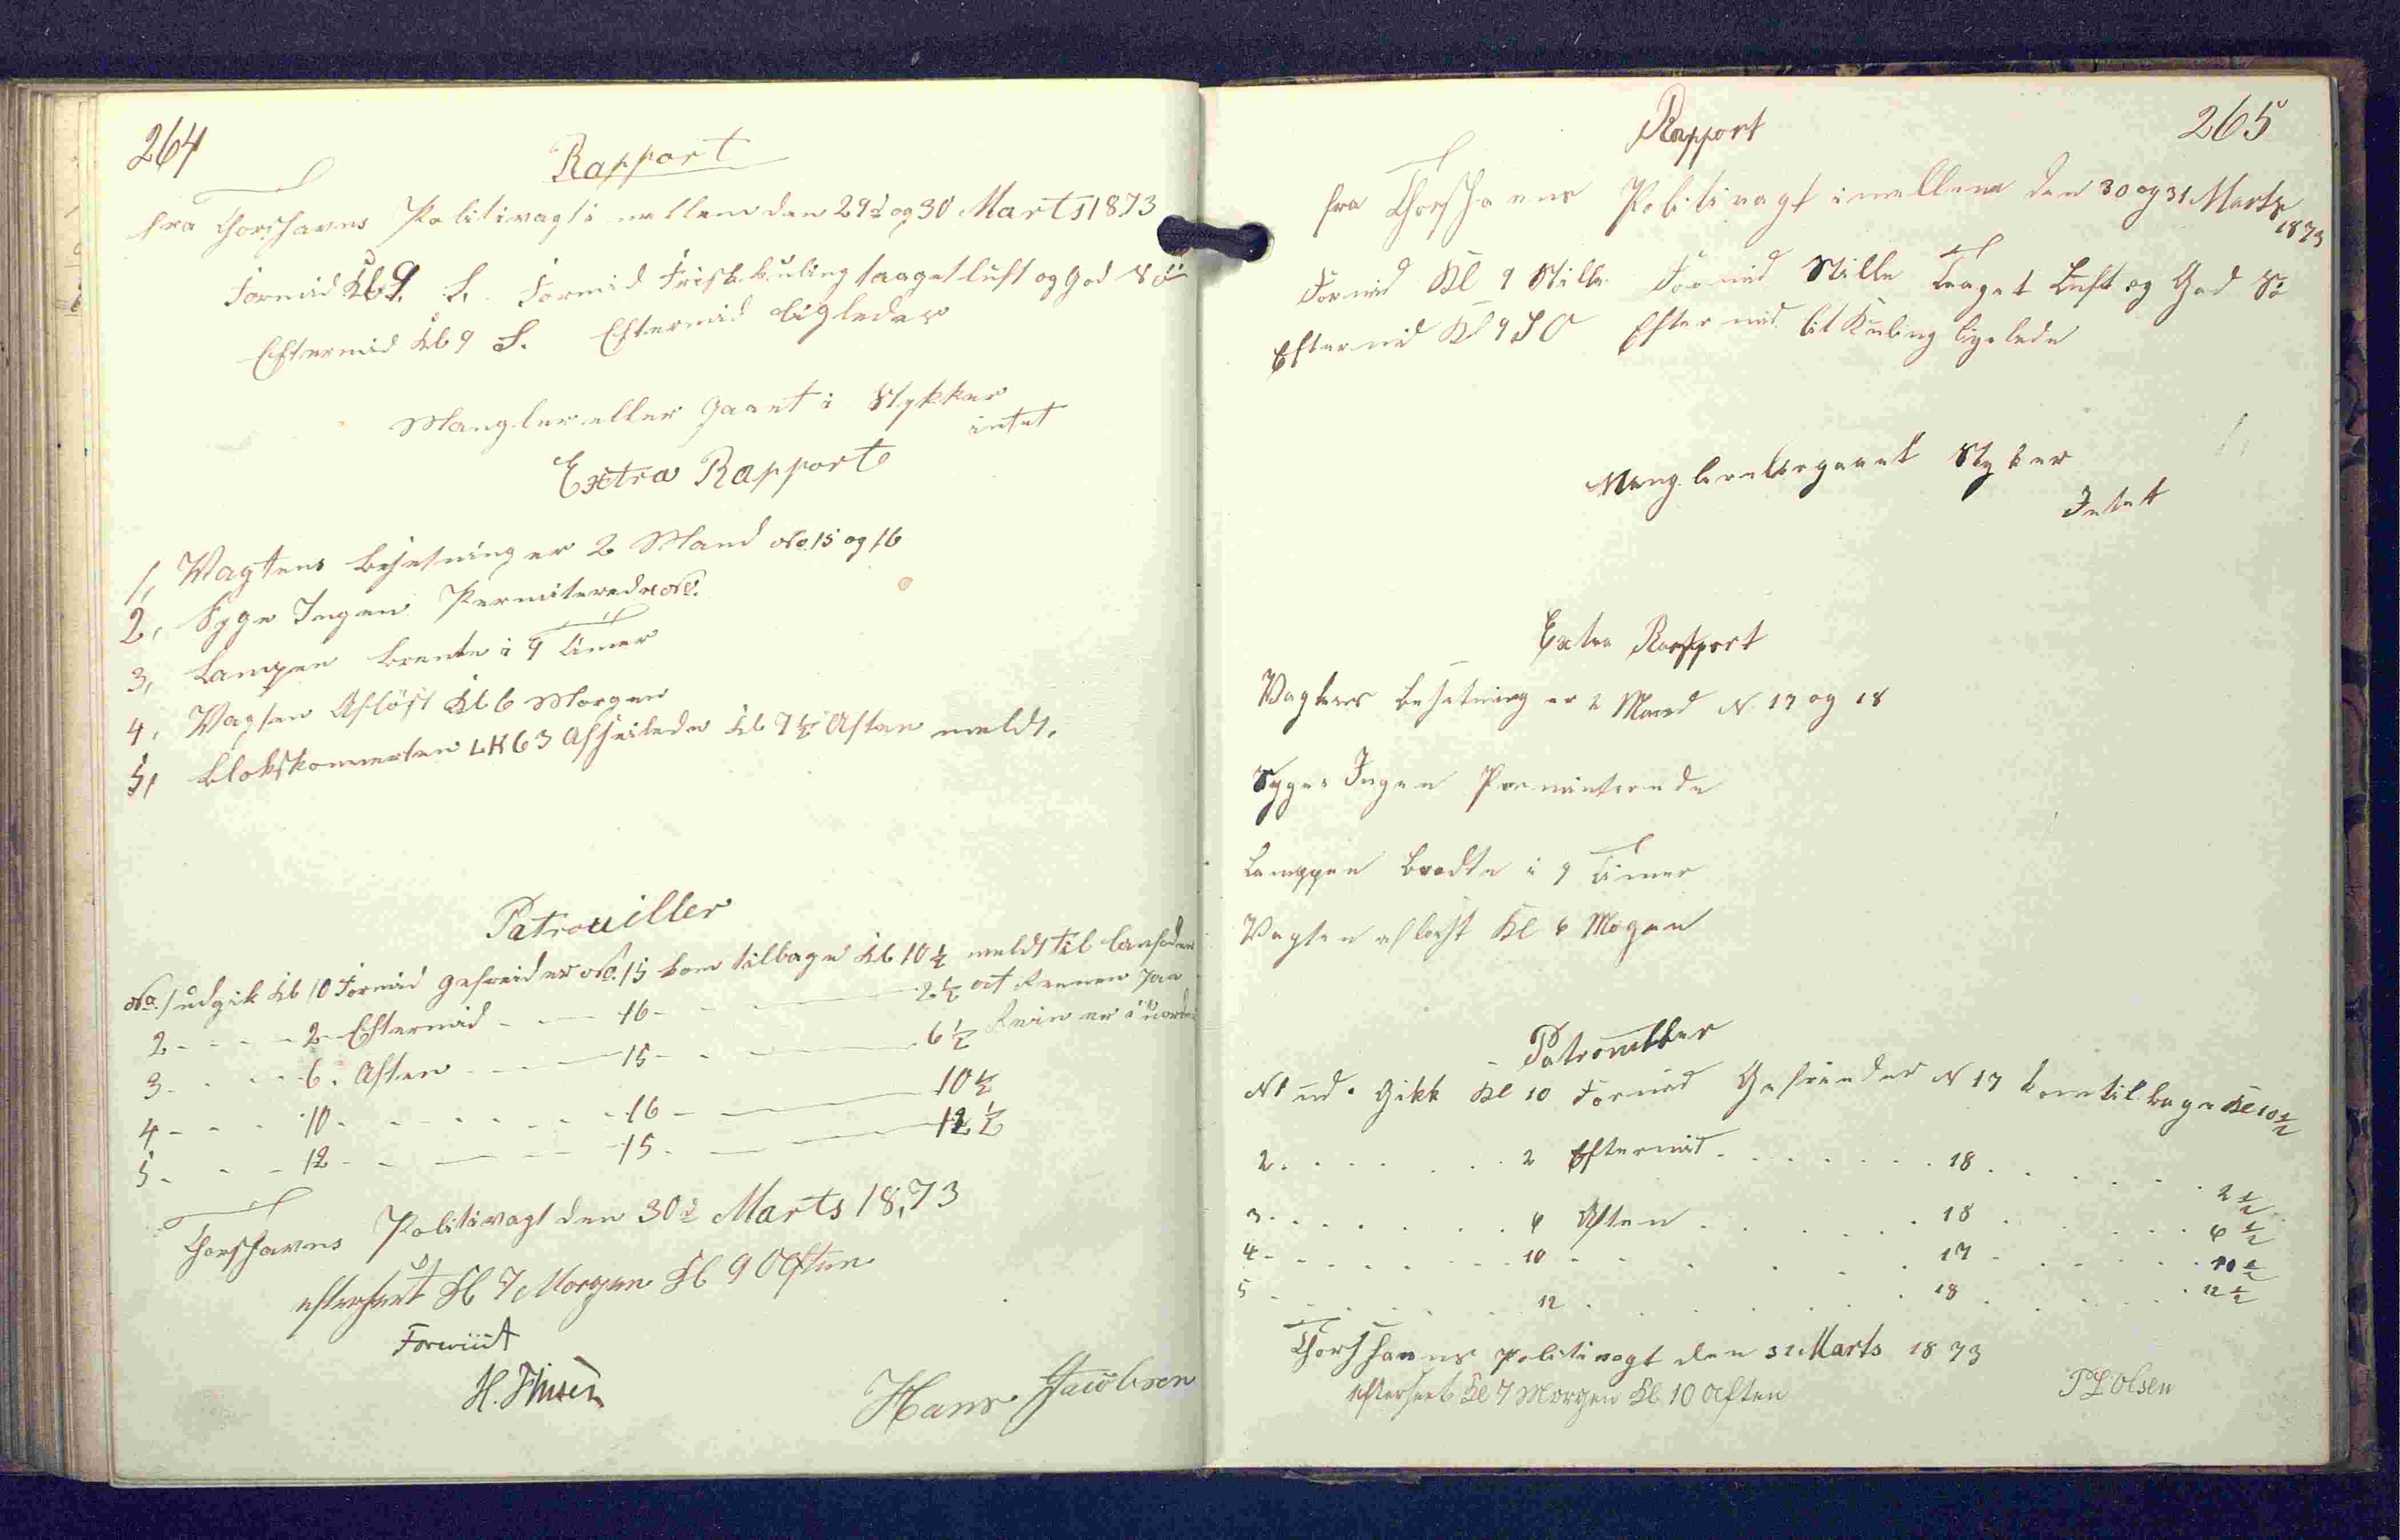 264
Rapport
fra Thorshavns Politivagt i mellem den 29d og 30 Marts 1873
Formid Kl 9. S. Formid Frisk Kuling taaget luft og God Sö
Eftermid Kl 9 S. Eftermid ligeledes
Mangler eller gaaet i Stykker
intet
Extra Rapport
1, Vagtens Besetning er 2 Mand No. 15 og 16
2, Syge Ingen Permiterede No.
3, Lampen brente i 9 Timer
4, Vagten Aflöst Kl 6 Morgen
5, Blokskonnerten LK 63 Afseilede Kl 7½ Aften meldt.
Patrouiller
No. 1 udgik Kl 10 Formid Gefreider No. 15 kom tilbage Kl 10½ meldt til
2 - - - 2 - Eftermid - - 16 - - 2½ at Rennen
3 - - - 6. Aften - - 15 - - 6½ er i
4 - - - 10 - - - - 16 - - 10½
5 - - - 12 - - - - 15 - - 12½
Thorshavns Politivagt den 30d Marts 1873
efterseet Kl 7 Morgen Kl 9 Aften
Foreviist
H.
Hans Jacobsen
265
Rapport
fra Thorshavns Politivagt imellem den 30 og 31 Marts
1873
Formid Kl 9 Stille Formid Stille Taaget Luft og God Sö
Eftermid Kl 9 SO Eftermid lit Kuling ligelede
Mangler eler gaaet Styker
Intett
Extra Rapport
Vagtens Besetning er 2 Mand N. 17 og 18
Syge Ingen Perminterende
Lamppen Brendte i 9 Timer
Vagten aflöst Kl 6 Mogen
Patrouiller
N 1 ud. Gikk Kl 10 Formid Gefreider N 17 kom tilbage Kl 10½
2 . . . . . . 2 Eftermid . . . . . . 18 . . . . . 2½
3 . . . . . . 6 Aften . . . . . 18 . . . . . 6½
4 - . . . . . 10 - . . . . . 17 - . . . . 10½
5 - . . . . . 12 . . . . . . 18 . . . . . 12½
Thorshavns politivagt den 31 Marts 1873
efterseet Kl 7 Morgen Kl. 10 Aften
P L Olsen